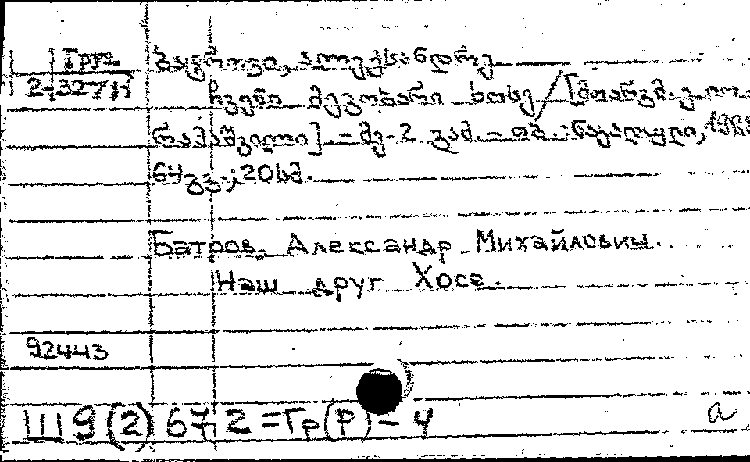 Груз
2-32711
ბატროვი, ალექსანდრე
ჩვენი მეგობარი ხოსე / [მთარგმ.
რამაშვილი] - მე-2 გამ. - თბ.: ნაკადული,
64 გვ.; 20 სმ.
Батров, Александр Михайловиы.
Наш друг Хосе.
92443
Ш 9(2) 67-2 = Гр(Р) - 4
a